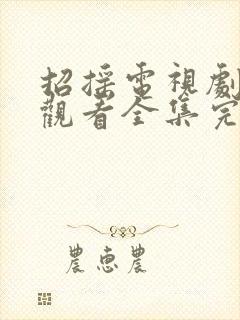 招摇電視劇
觀看全集完
農惠農